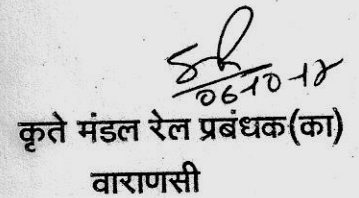 06-10-12
कृते मंडल रेल प्रबंधक(का)
वाराणसी